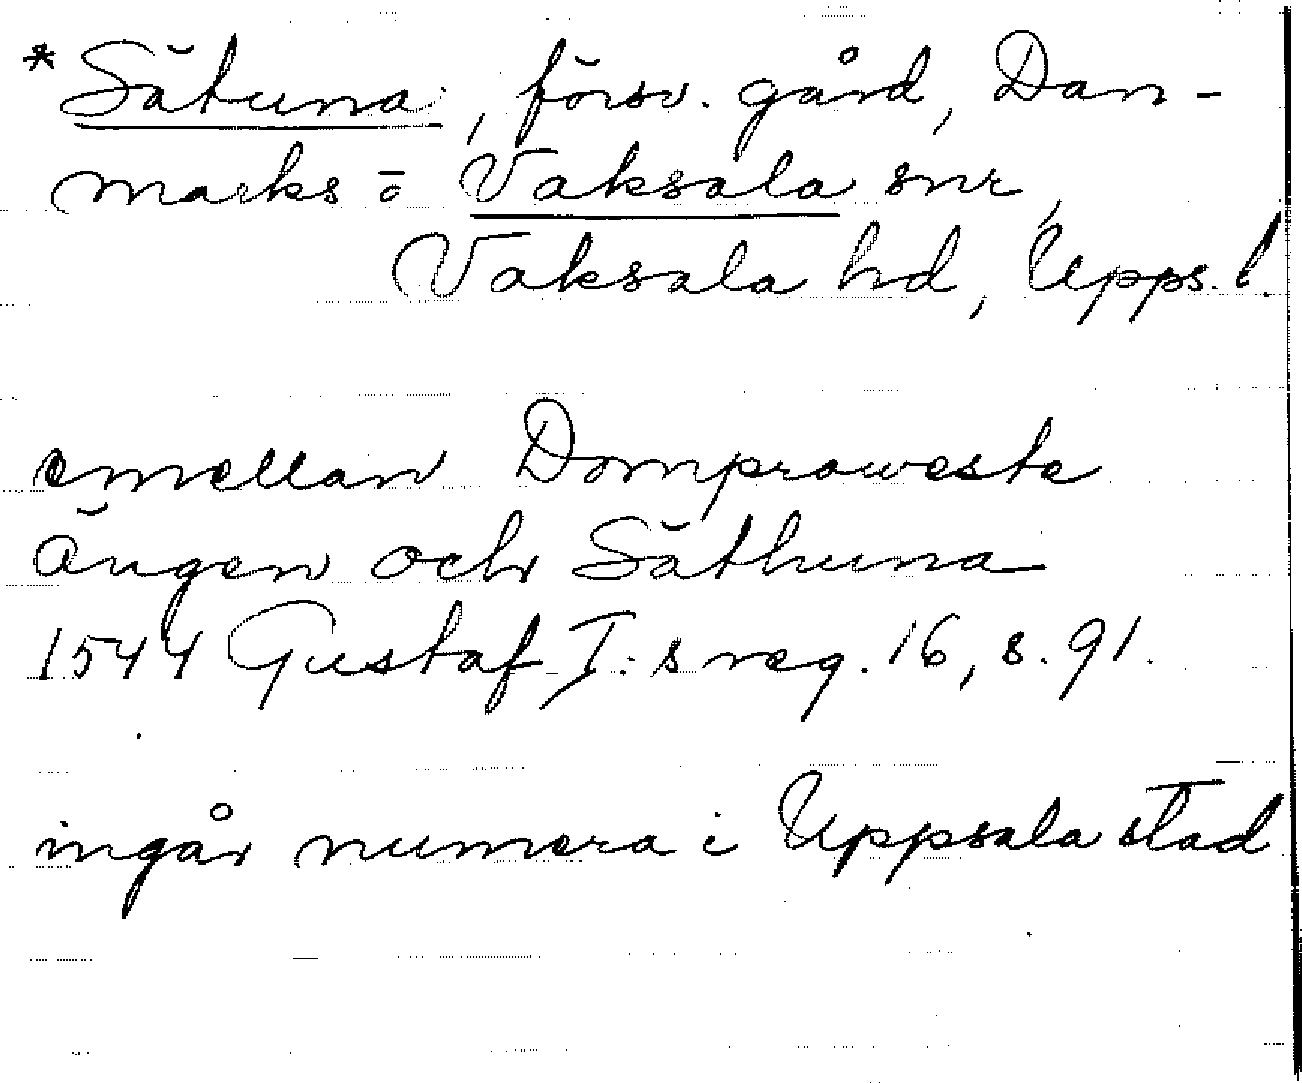 *Sätuna, försv. gård, Dan-
marks o Vaksala snr,
Vaksala hd, Upps. l.
emellan Domproweste
ängen och Säthuna
1544 Gustaf I:s reg. 16, s. 91.
ingår numera i Uppsala stad